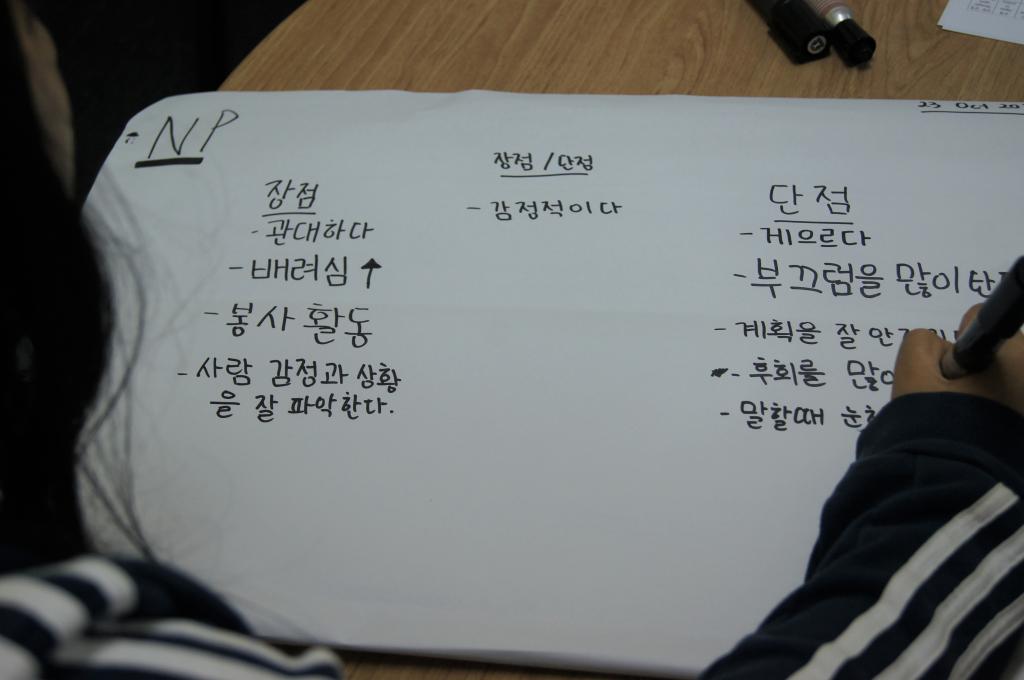 NP
23 Oct
장점
- 관대하다
- 배려심 ↑
- 봉사 활동
- 사람 감정과 상황
을 잘 파악한다.
장점 / 단점
- 감정적이다
단점
- 게으르다
- 부끄럼을 많이
- 계획을 잘
- 후회를
- 말할때